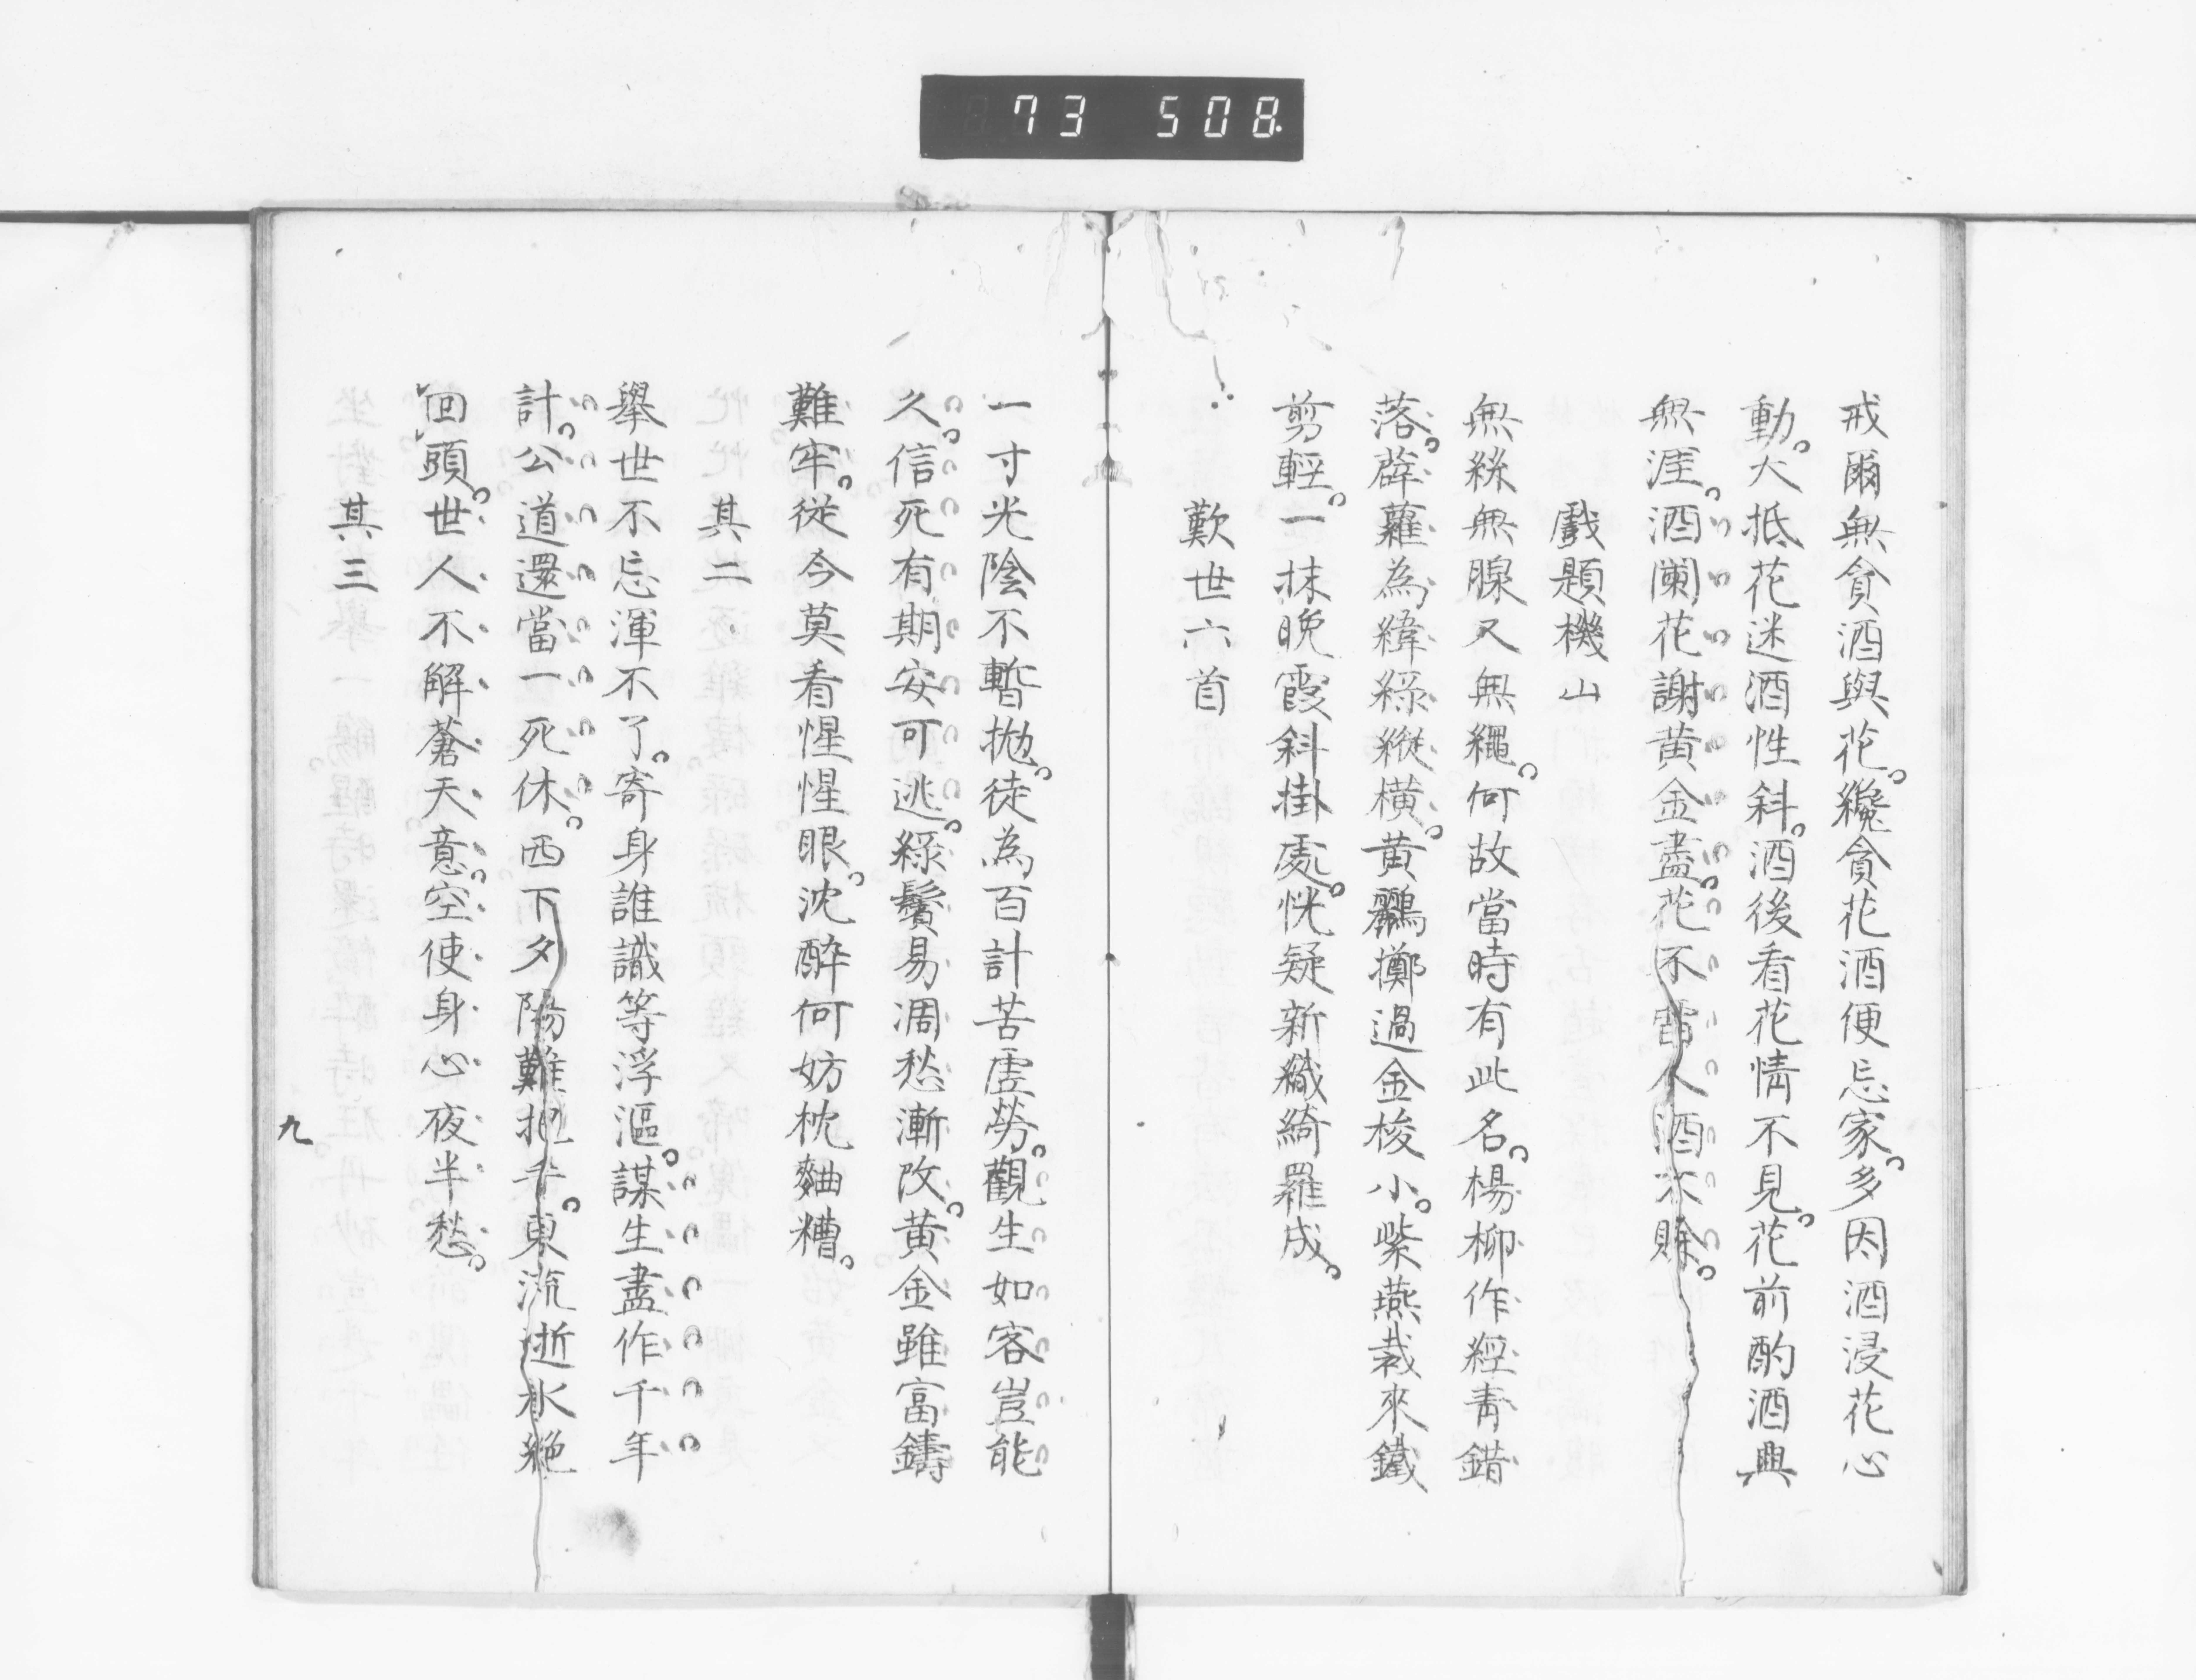 73 508.
戒爾無貪酒與花。纔貪花酒便忘家。多因酒浸花心
動。大抵花迷酒性斜。酒後看花情不見。花前酌酒興
無涯。酒闌花謝黃金盡。花不留人酒不賒。
戲題機山
無絲無線又無繩。何故當時有此名。楊柳作經青錯
落。薜蘿為緯綠縱橫。黃鸝擲過金梭小。紫燕裁來鐵
剪輕。一抹晚霞斜掛處。恍疑新織綺羅成。
歎世六首
一寸光陰不暫拋。徒為百計苦虛勞。觀生如客豈能
久。信死有期安可逃。綠鬢易凋愁漸改。黃金雖富鑄
難牢。從今莫看惺惺眼。沈醉何妨枕麯糟。
其二
舉世不忘渾不了。寄身誰識等浮漚。謀生盡作千年
計。公道還當一死休。西下夕陽難把手。東流逝水絕
回頭。世人不解蒼天意。空使身心夜半愁。
其三
九